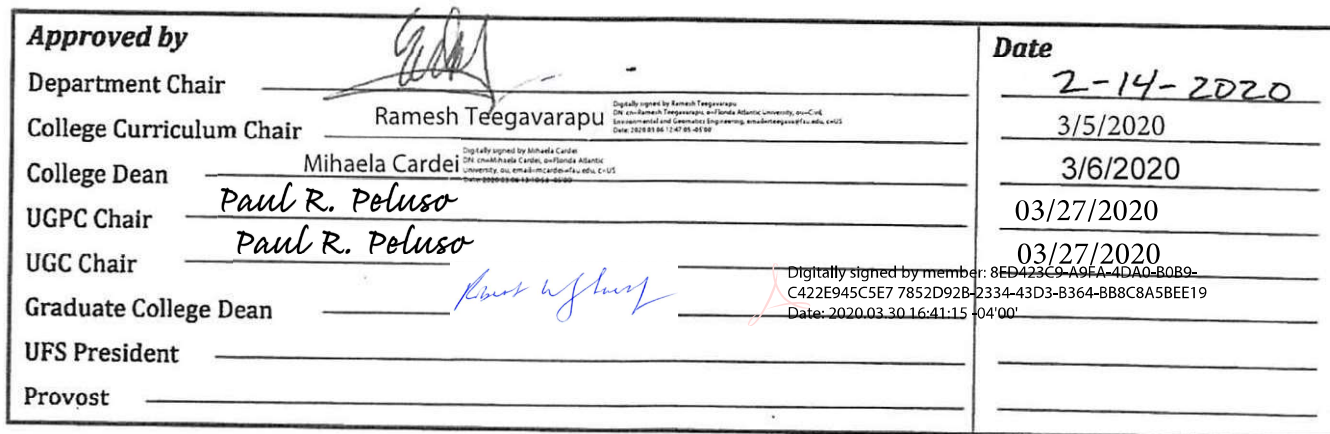 Approved by
Date
Department Chair
2-14-2020
College Curriculum Chair
Ramesh Teegavarapu
Digitally signed by Ramesh Teegavarapu
DN: cn=Ramesh Teegavarapu, o=Florida Atlantic University, ou=Civil,
Environmental and Geomatics Engineering, email=rteegava@fau.edu, c=US
3/5/2020
College Dean
Mihaela Cardei
Digitally signed by Mihaela Cardei
DN: cn=Mihaela Cardei, o=Florida Atlantic
University, ou, email=mcardei@fau.edu, c=US
3/6/2020
UGPC Chair
Paul R. Peluso
03/27/2020
UGC Chair
Paul R. Peluso
03/27/2020
Graduate College Dean
Digitally signed by member: 8ED423C9-A9FA-4DA0-B0B9-
C422E945C5E7 7852D92B-2334-43D3-B364-BB8C8A5BEE19
Date: 2020.03.30 16:41:15 -04'00'
UFS President
Provost